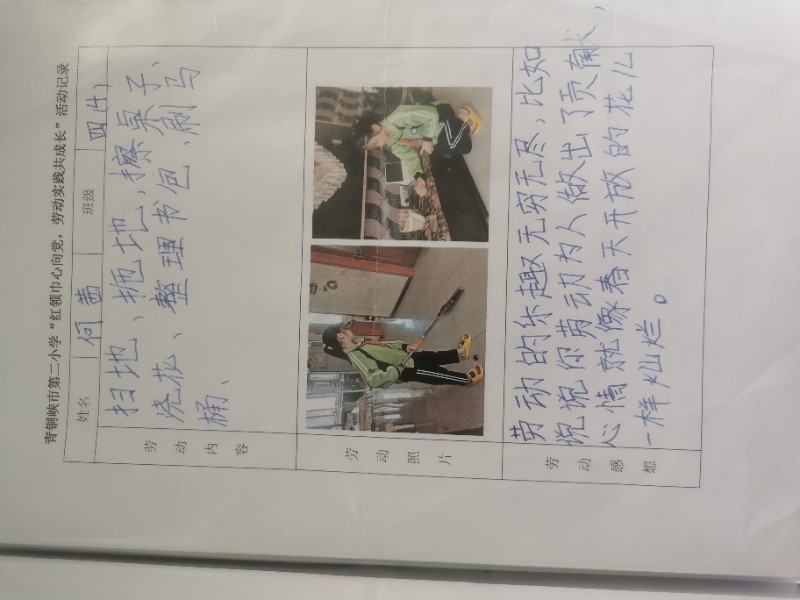 青铜峡市第二小学“红领巾心向党，劳动实践共成长”活动记录
姓名 何茜 班级 四(4)
劳动内容
扫地、拖地、擦桌子、
浇花、整理书包、刷马
桶、
劳动照片
劳动感想
劳动的乐趣无穷无尽，比如
说说你劳动为人做出了贡献，
心情就像春天开放的花儿
一样灿烂。